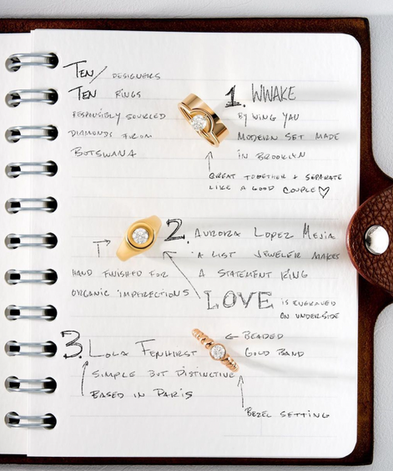 TEN/ DESIGNERS
TEN RINGS
RESPONSIBLY SOURCED
DIAMONDS FROM
BOTSWANA
1. WWAKE
BY WING YAU
MODERN SET MADE
IN BROOKLYN
GREAT TOGETHER & SEPARATE
LIKE A GOOD COUPLE♡
2. AURORA LOPEZ MEJIA
A LIST JEWELER MAKES
A STATEMENT RING
HAND FINISHED FOR
ORGANIC IMPERFECTIONS
LOVE IS ENGRAVED
ON UNDERSIDE
3. LOLA FENHIRST
SIMPLE BUT DISTINCTIVE
BASED IN PARIS
← BEADED
GOLD BAND
BEZEL SETTING